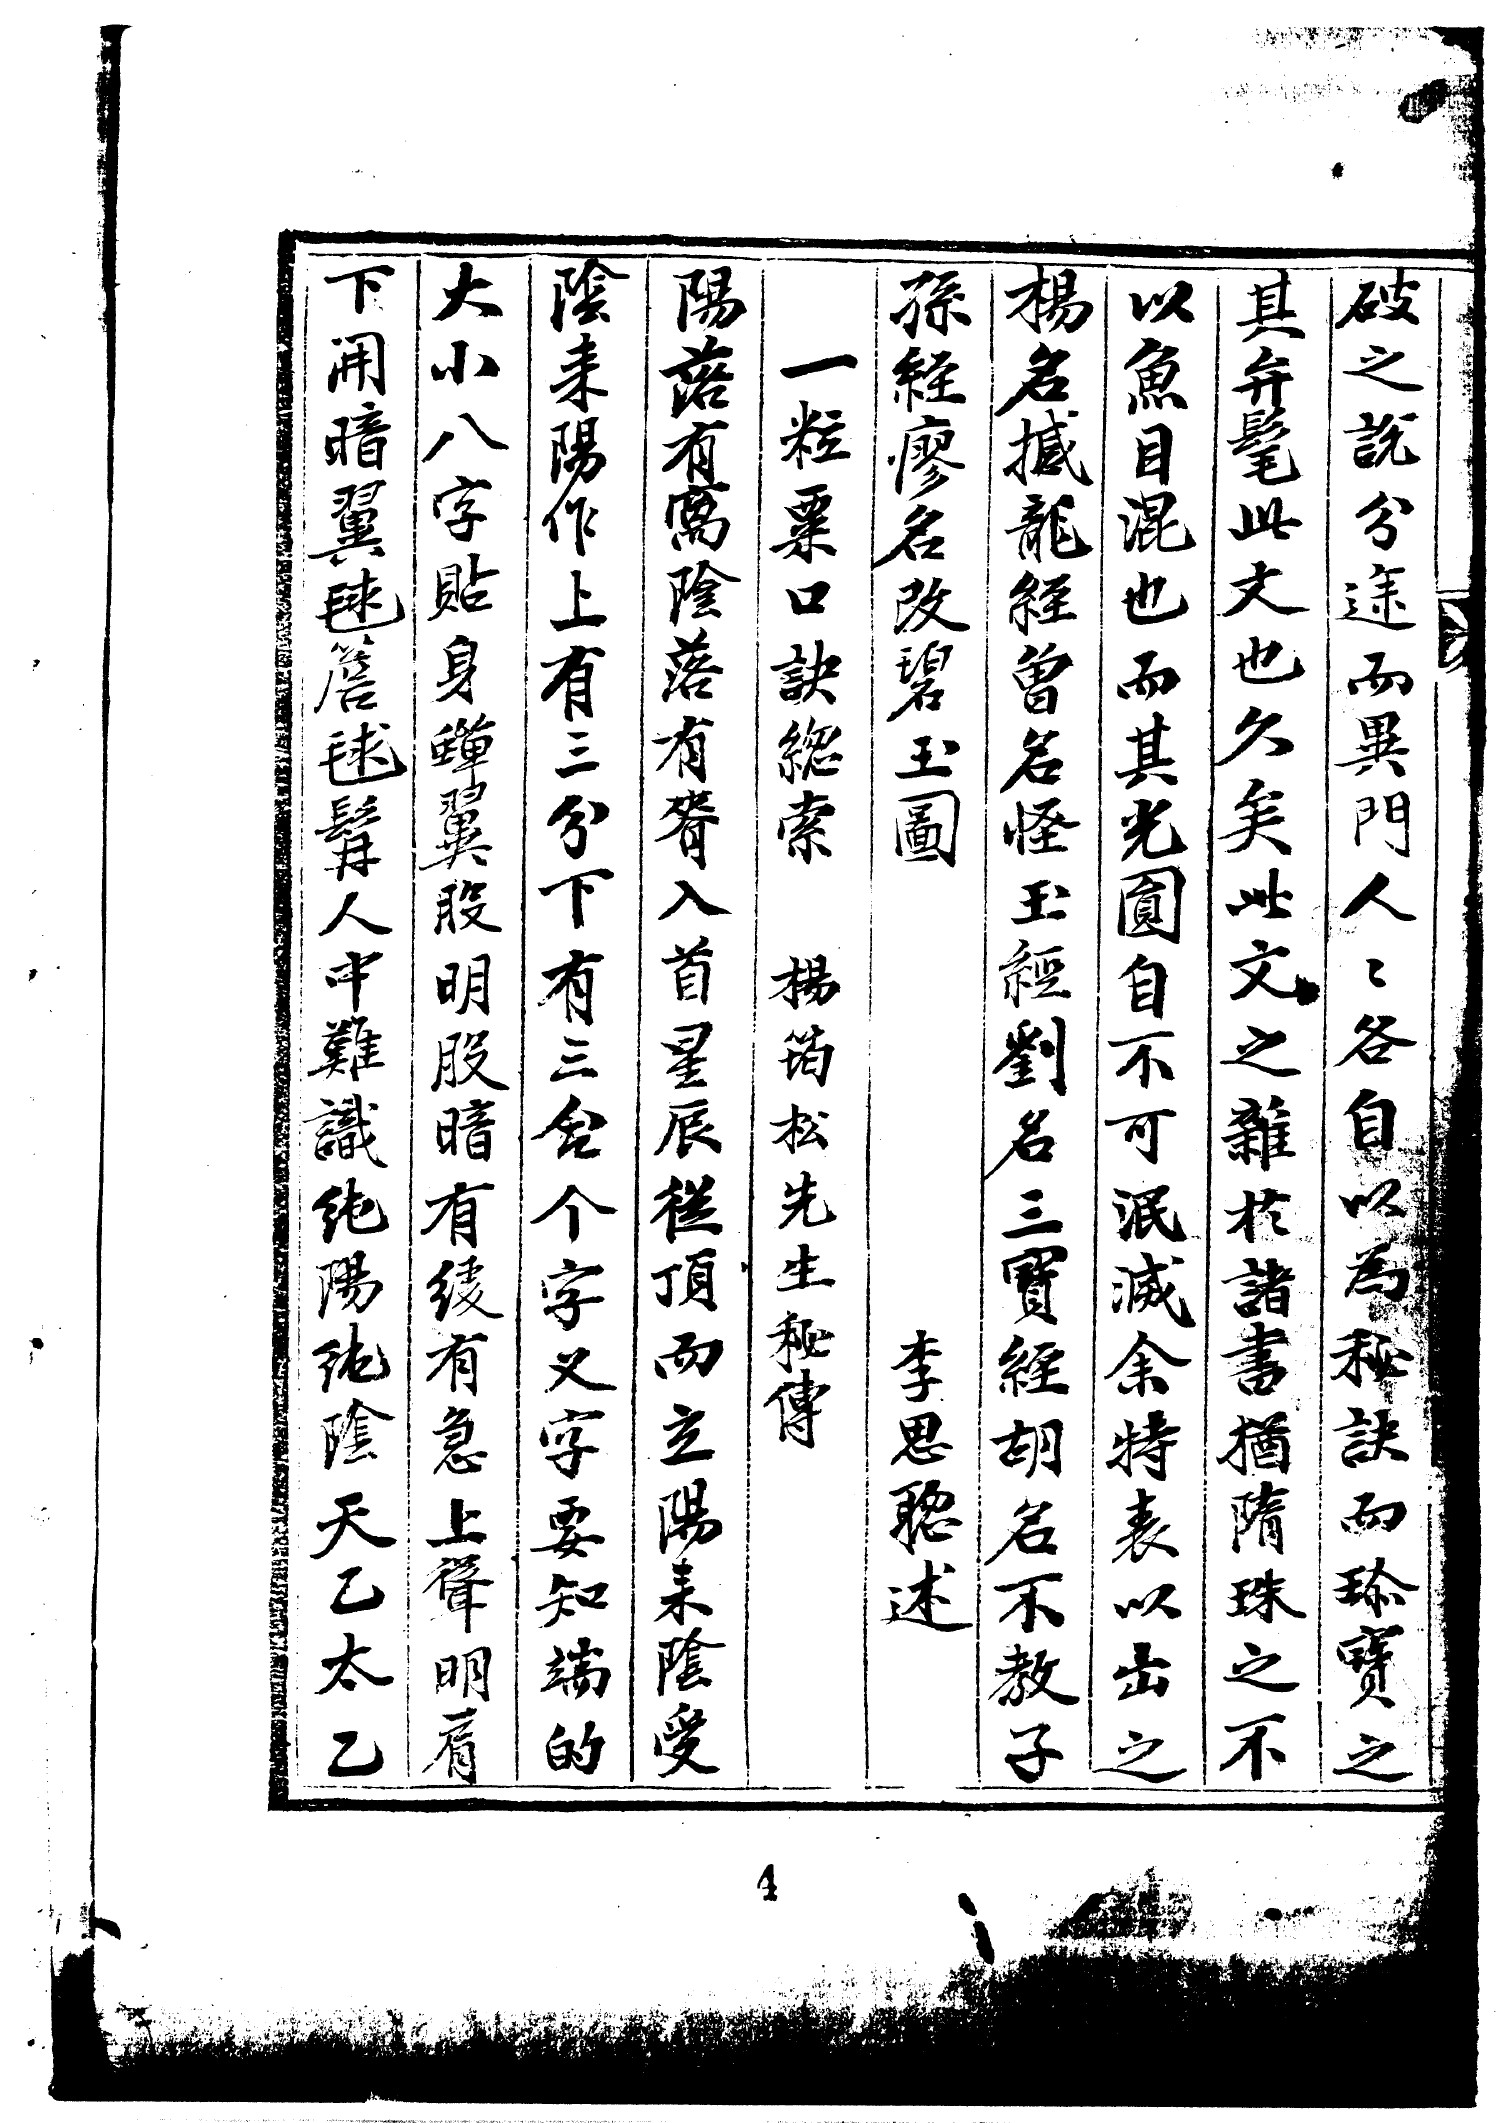 破之說分途而異門人〻各自以為秘訣而珎寶之
其弁髦此文也久矣此文之雜於諸書猶隋珠之不
以魚目混也而其光圓自不可泯滅余特表以出之
楊名撼龍經曾名怪玉經劉名三寶經胡名不教子
孫經廖名改碧玉圖 李思聰述
一粒粟口訣總索 楊筠松先生秘傳
陽落有窩陰落有脊入首星辰從頂而立陽來陰受
陰來陽作上有三分下有三合个字义字要知端的
大小八字貼身蟬翼股明股暗有緩有急上聳明肩
下開暗翼毬簷毬髯人中難識純陽純陰天乙太乙
4